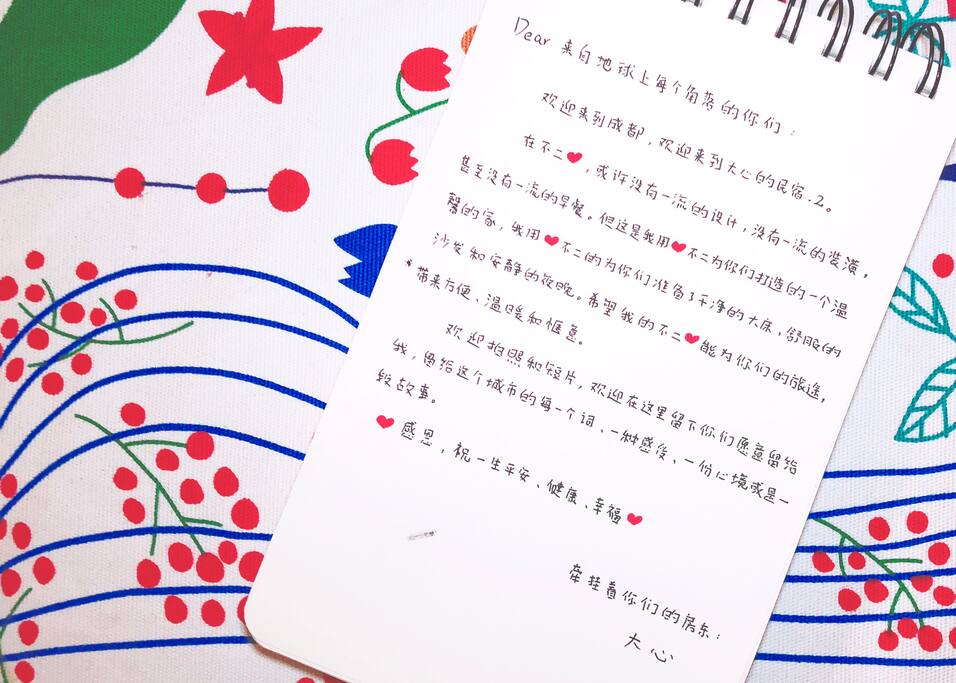 Dear 来自地球上每个角落的你们：
欢迎来到成都，欢迎来到大心的民宿.2。
在不二❤，或许没有一流的设计，没有一流的装潢，
甚至没有一流的早餐。但这是我用❤不二为你们打造的一个温
馨的家，我用❤不二的为你们准备了干净的大床，舒服的
沙发和安静的夜晚。希望我的不二❤能为你们的旅途，
*带来方便、温暖和惬意。
欢迎拍照和短片，欢迎在这里留下你们愿意留给
我，留给这个城市的每一个词、一种感受、一份心境或是一
段故事。
❤感恩，祝一生平安、健康、幸福❤
牵挂着你们的房东：
大心